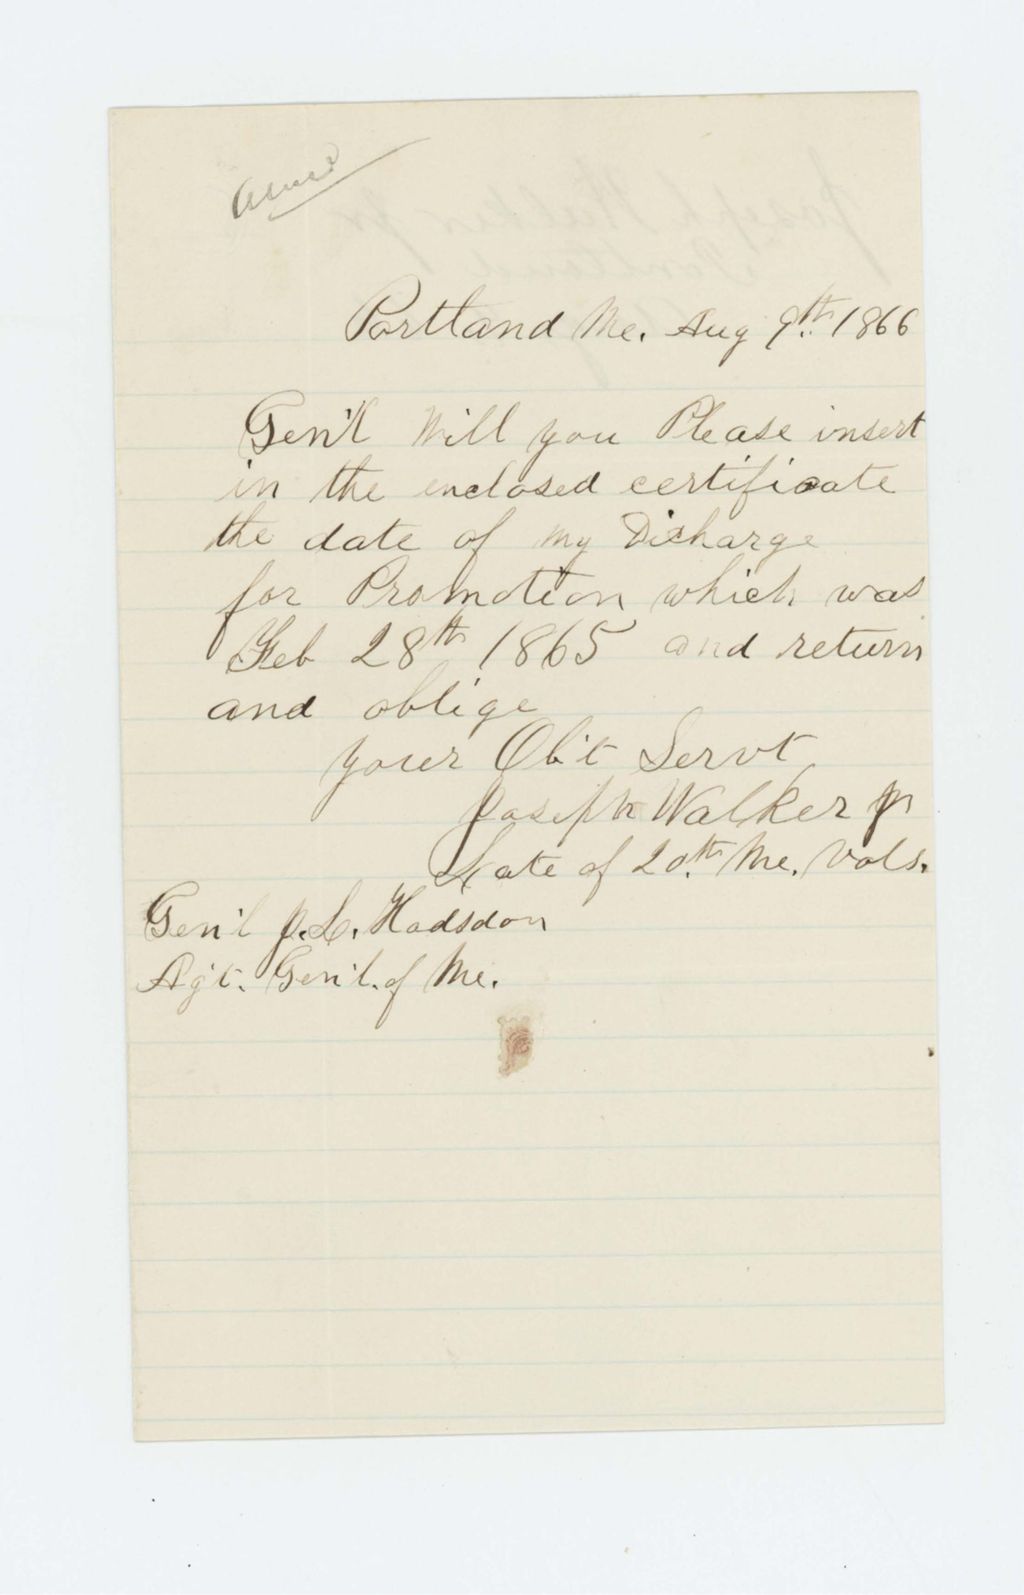 Portland Me. Aug 9th 1866
Gen'l Will you Please insert
in the enclosed certificate
the date of my Dicharge
for Promotion which was
Feb 28th 1865 and return
and oblige
your Ob't Servt
Joseph Walker Jr
Late of 20th Me. Vols.
Gen'l J. L. Hodsdon
Agt. Gen'l. of Me.